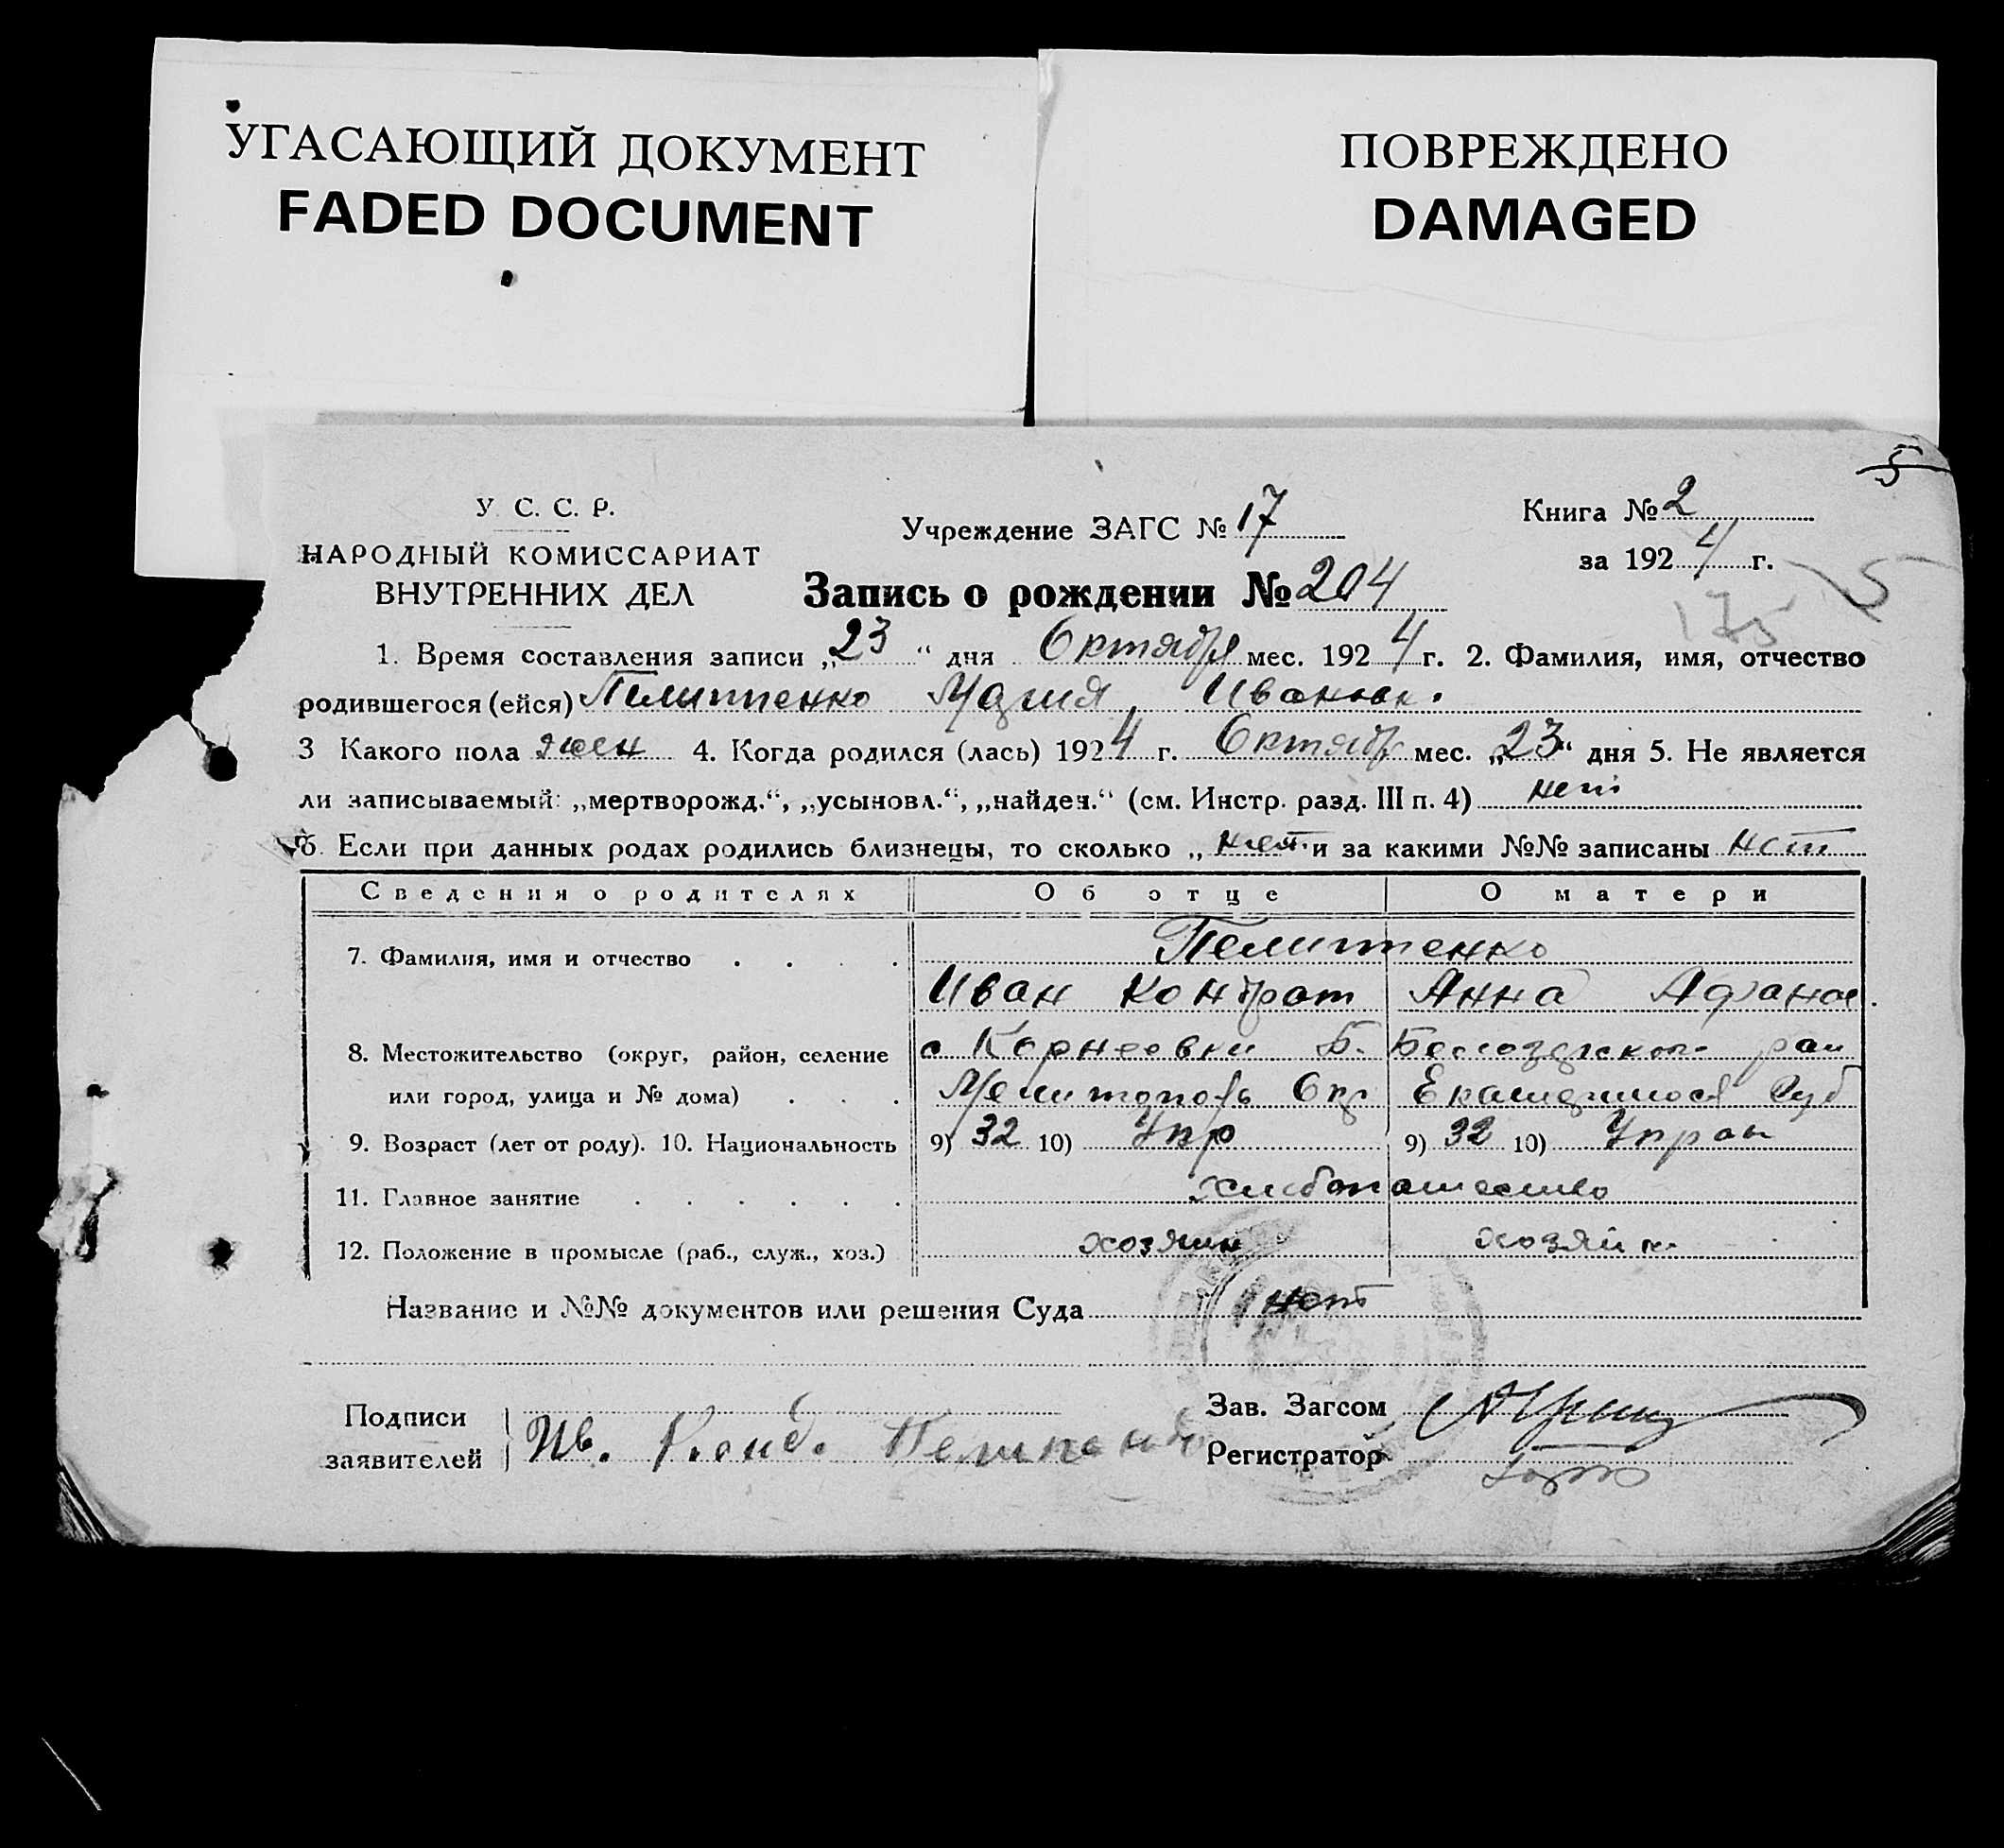 УГАСАЮЩИЙ ДОКУМЕНТ
FADED DOCUMENT
ПОВРЕЖДЕНО
DAMAGED
5
У. С. С. Р.
НАРОДНЫЙ КОМИССАРИАТ
ВНУТРЕННИХ ДЕЛ
Учреждение ЗАГС № 17
Книга № 2
за 1924 г.
Запись о рождении № 204
175
1. Время составления записи „23“ дня Октября мес. 1924 г. 2. Фамилия, имя, отчество
родившегося (ейся) Пелипенко Мария Ивановн.
3 Какого пола жен 4. Когда родился (лась) 1924 г. Октябр мес. „23“ дня 5. Не является
ли записываемый: „мертворожд.“, „усыновл.“, „найден.“ (см. Инстр. разд. III п. 4) нет
6. Если при данных родах родились близнецы, то сколько „нет и за какими №№ записаны нет
Сведения о родителях Об отце О матери
7. Фамилия, имя и отчество Пелипенко
Иван Кондрат Анна Афанас.
8. Местожительство (округ, район, селение с Корнеевки Б. Белозерског рай
или город, улица и № дома) Мелитополь Окр
9. Возраст (лет от роду). 10. Национальность 9) 32 10) Укр 9) 32 10) Украи
11. Главное занятие хлебопашество
12. Положение в промысле (раб., служ., хоз.) хозяин хозяйк.
Название и №№ документов или решения Суда нет
Подписи
заявителей Ив. Конд. Пелипенко
Зав. Загсом
Регистратор